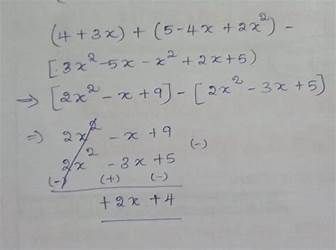 (4 + 3x) + (5 - 4x + 2x²) -
[3x² - 5x - x² + 2x + 5)
⇒ [2x² - x + 9] - [2x² - 3x + 5]
⇒ 2x² - x + 9
2x² - 3x + 5 (-)
(-) (+) (-)
+ 2x + 4